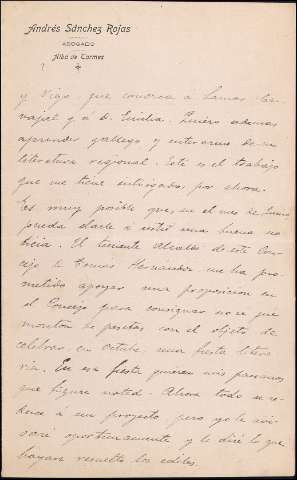 Andrés Sánchez Rojas
ABOGADO
Alba de Tormes
y Vigo, que conozca a Lamas Car-
vajal y a D. Emilia. Quiero además
aprender gallego y enterarme de su
literatura regional. Este es el trabajo
que me tiene entregado por ahora.
Es muy posible que, en el mes de Enero
pueda darle á usted una buena no-
ticia. El teniente alcalde de este Con-
cejo D. Tomás Hernández me ha pro-
metido apoyar una proposición en
el Concejo para consignar no se que
montón de pesetas con el objeto de
celebrar, en Octubre, una fiesta litera-
ria. En esa fiesta quieren mis paisanos
que figure usted. Ahora todo se re-
duce á un proyecto, pero yo le avi-
saré oportunamente y le diré lo que
hayan resuelto los ediles.